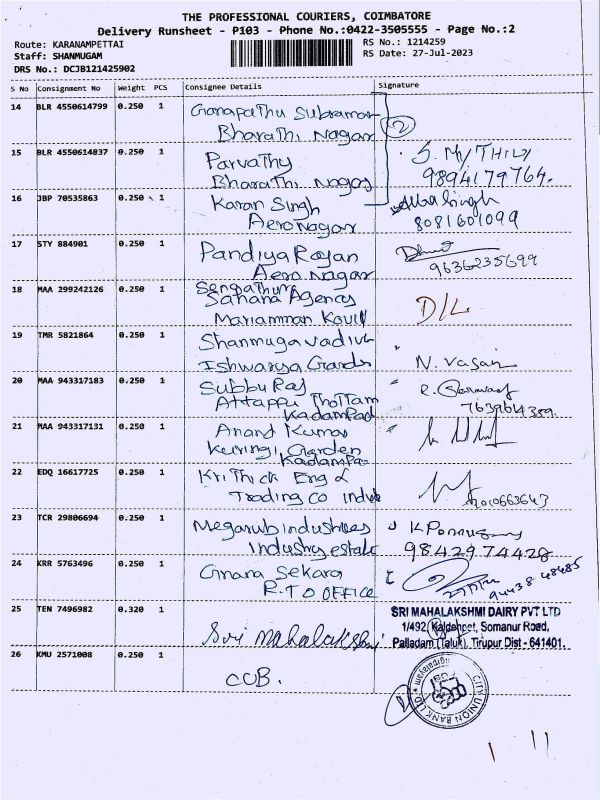 THE PROFESSIONAL COURIERS, COIMBATORE
Delivery Runsheet - P103 - Phone No.:0422-3505555 - Page No.:2
Route: KARANAMPETTAI
Staff: SHANMUGAM
DRS No.: DCJB121425902
RS No.: 1214259
RS Date: 27-Jul-2023
S No Consignment No Weight PCS Consignee Details Signature
14 BLR 4550614799 0.250 1 Ganapathy Subraman
Bharathi Nagar
2
15 BLR 4550614837 0.250 1 Parvathy S. MYTHILY
Bharathi Nagar 9894179764.
16 JBP 70535863 0.250 1 Karan Singh
Aero Nagar 8081601099
17 STY 884901 0.250 1 Pandiya Rajan
Aero Nagar 9636235699
18 MAA 299242126 0.250 1
Sahana Agency D/L
Mariamman Kovil
19 TMR 5821864 0.250 1 Shanmuga vadivu
Ishwarya Garden N. Vasan
20 MAA 943317183 0.250 1 Subbu Raj
Attappu Thottam 7639614359
Kadampad
21 MAA 943317131 0.250 1 Anand Kumar
Kuringi Garden
Kadampa
22 EDQ 16617725 0.250 1 Kri Thick Eng &
Trading Co Indus
23 TCR 29806694 0.250 1 Megarub industries
Industry estate 9842974428
24 KRR 5763496 0.250 1 Gnana Sekara
R.T.O OFFICE 94438 48485
25 TEN 7496982 0.320 1 Sri Mahalakshmi
SRI MAHALAKSHMI DAIRY PVT LTD
1/492, Somanur Road,
Palladam (Taluk), Tirupur Dist - 641401.
26 KMU 2571008 0.250 1 CUB.
CITY UNION BANK LTD